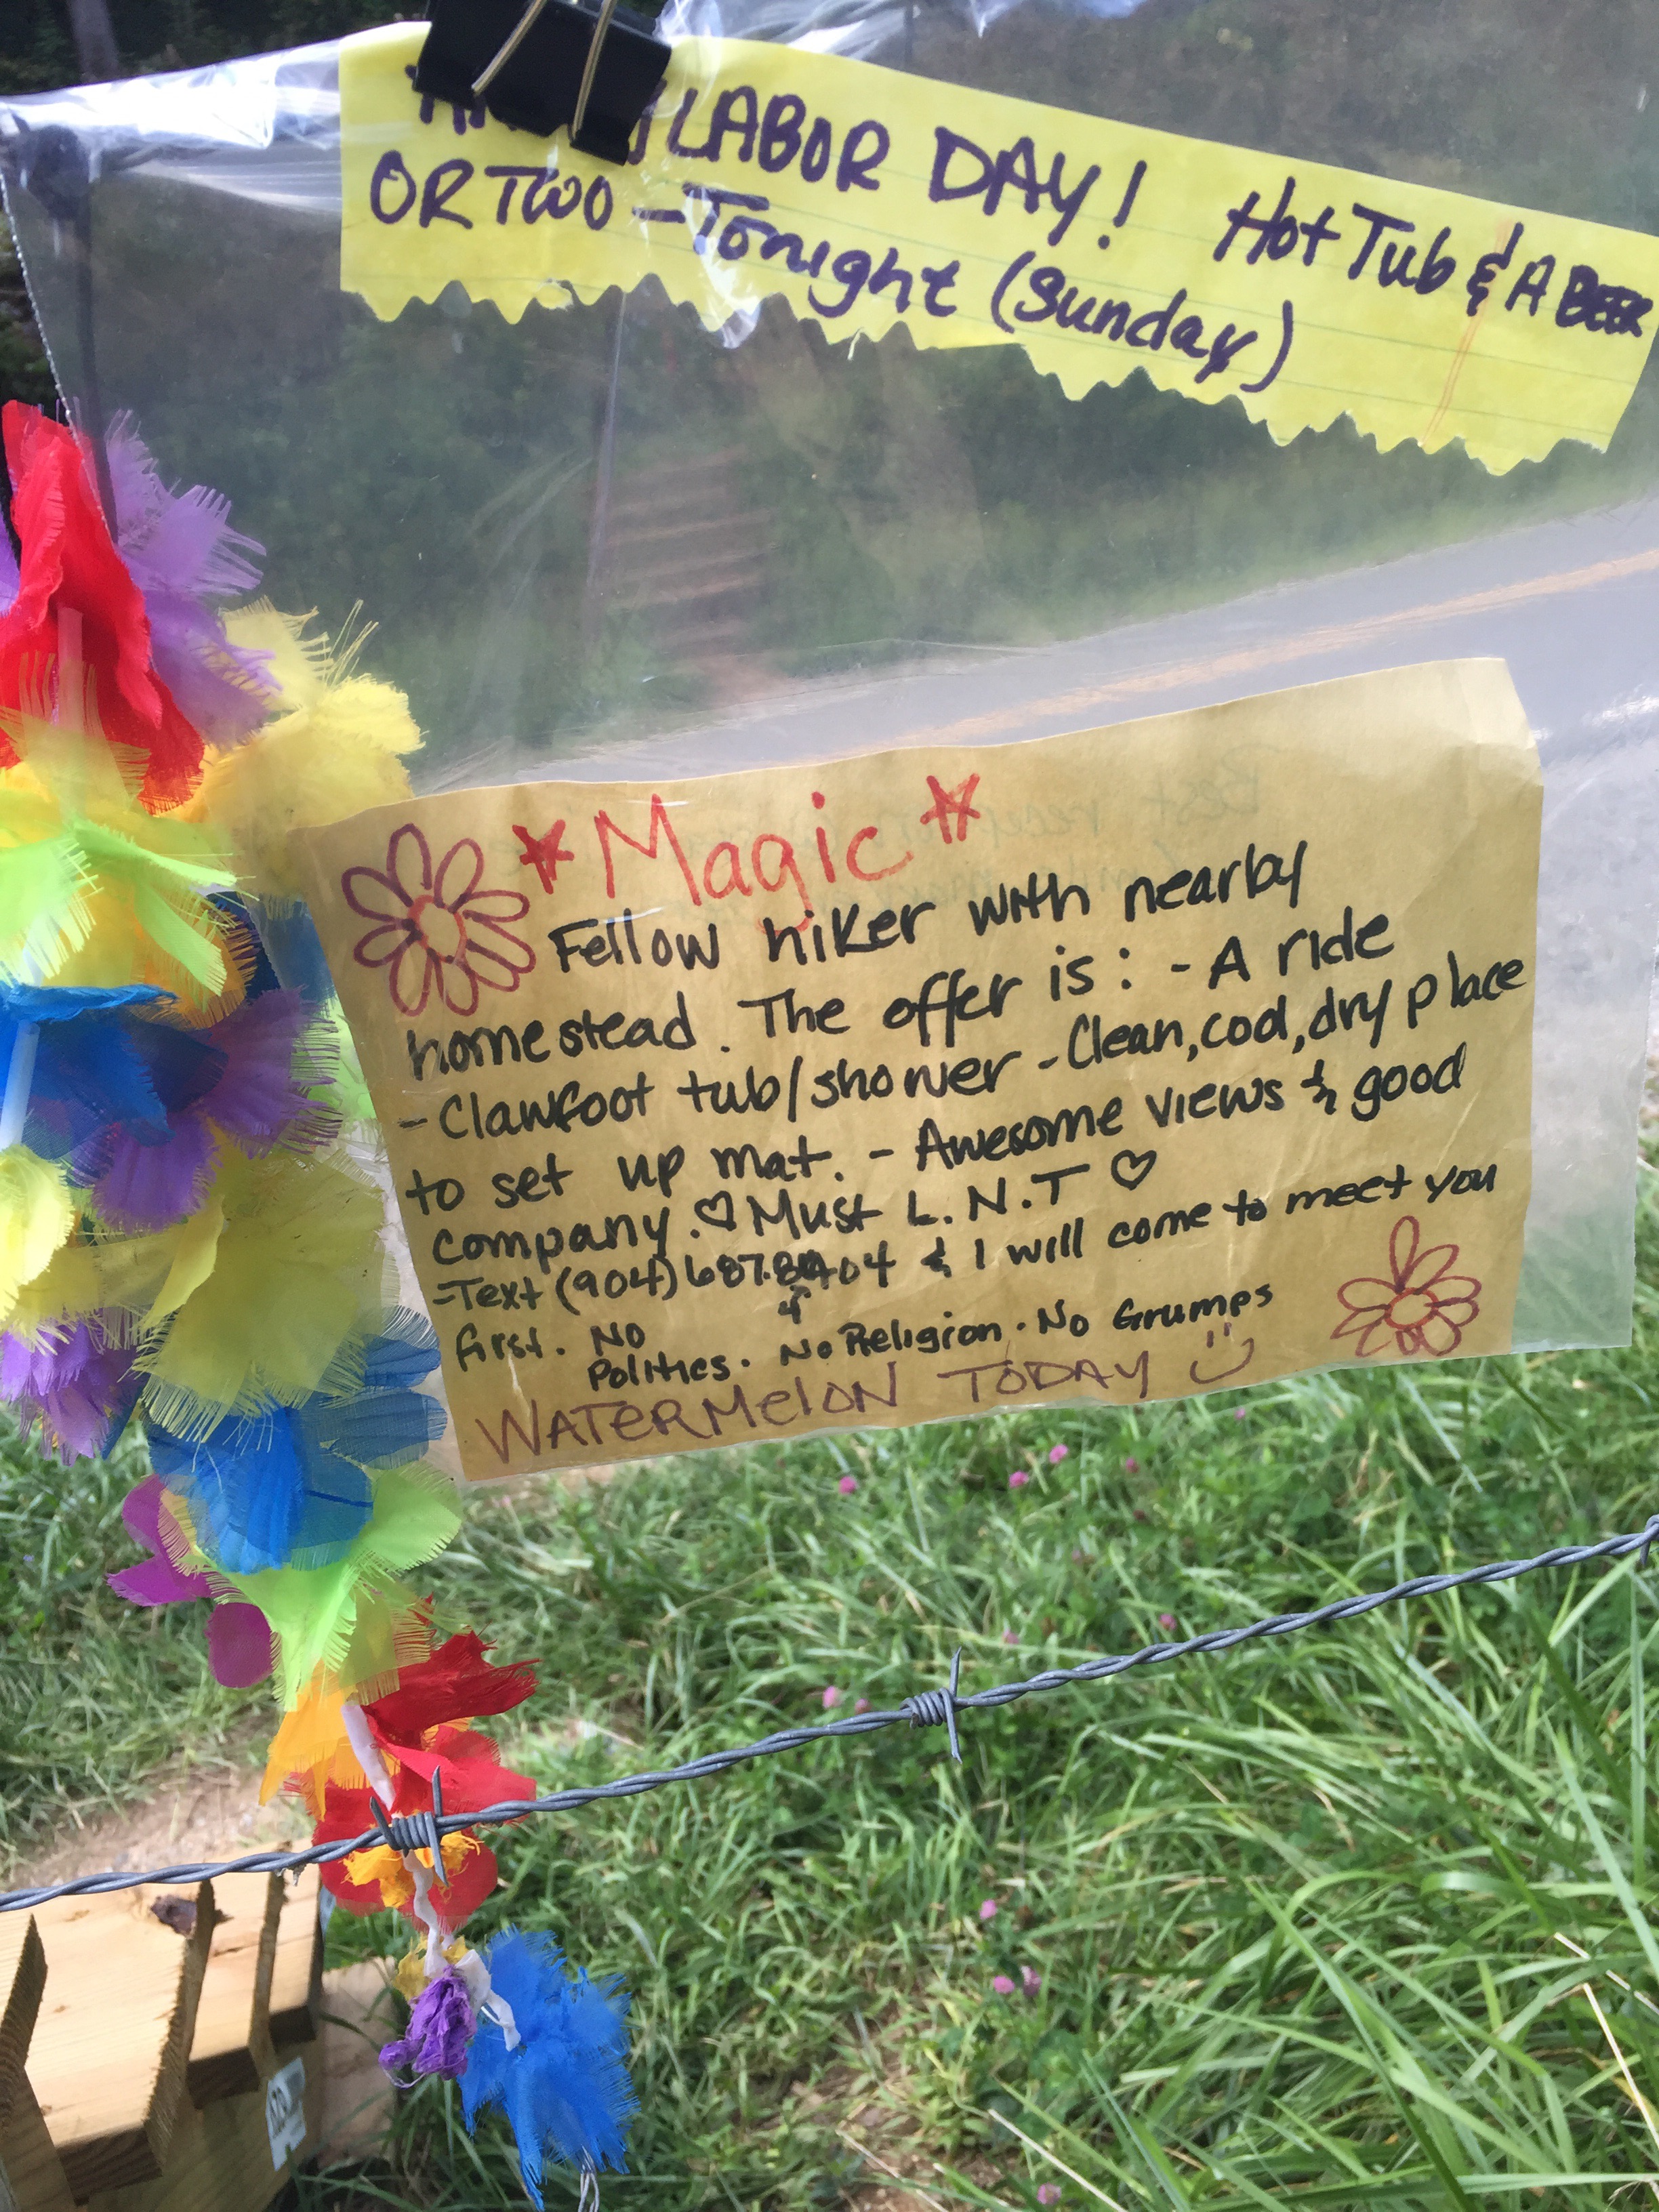 LABOR DAY! Hot Tub & A BEER
OR TWO - Tonight (Sunday)
Magic
Fellow hiker with nearby
homestead. The offer is: - A ride
- Clawfoot tub/shower - Clean, cool, dry place
to set up mat. - Awesome views & good
company. ♡ Must L.N.T ♡
- Text (904) & I will come to meet you
first. No Politics. No Religion. No Grumps
WATERMELON TODAY